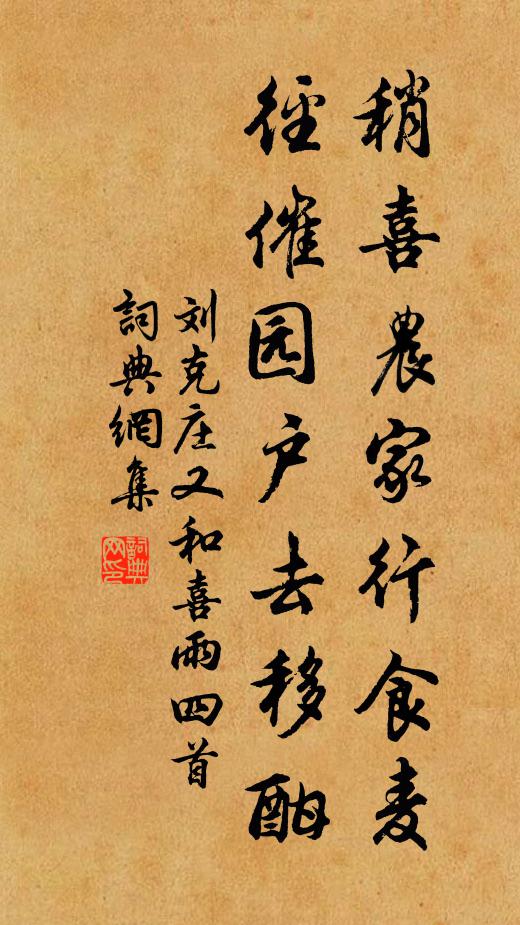 稍喜農家行食麦
徑催园户去移酣
刘克庄又和喜雨四首
詞典網集
詞典网印